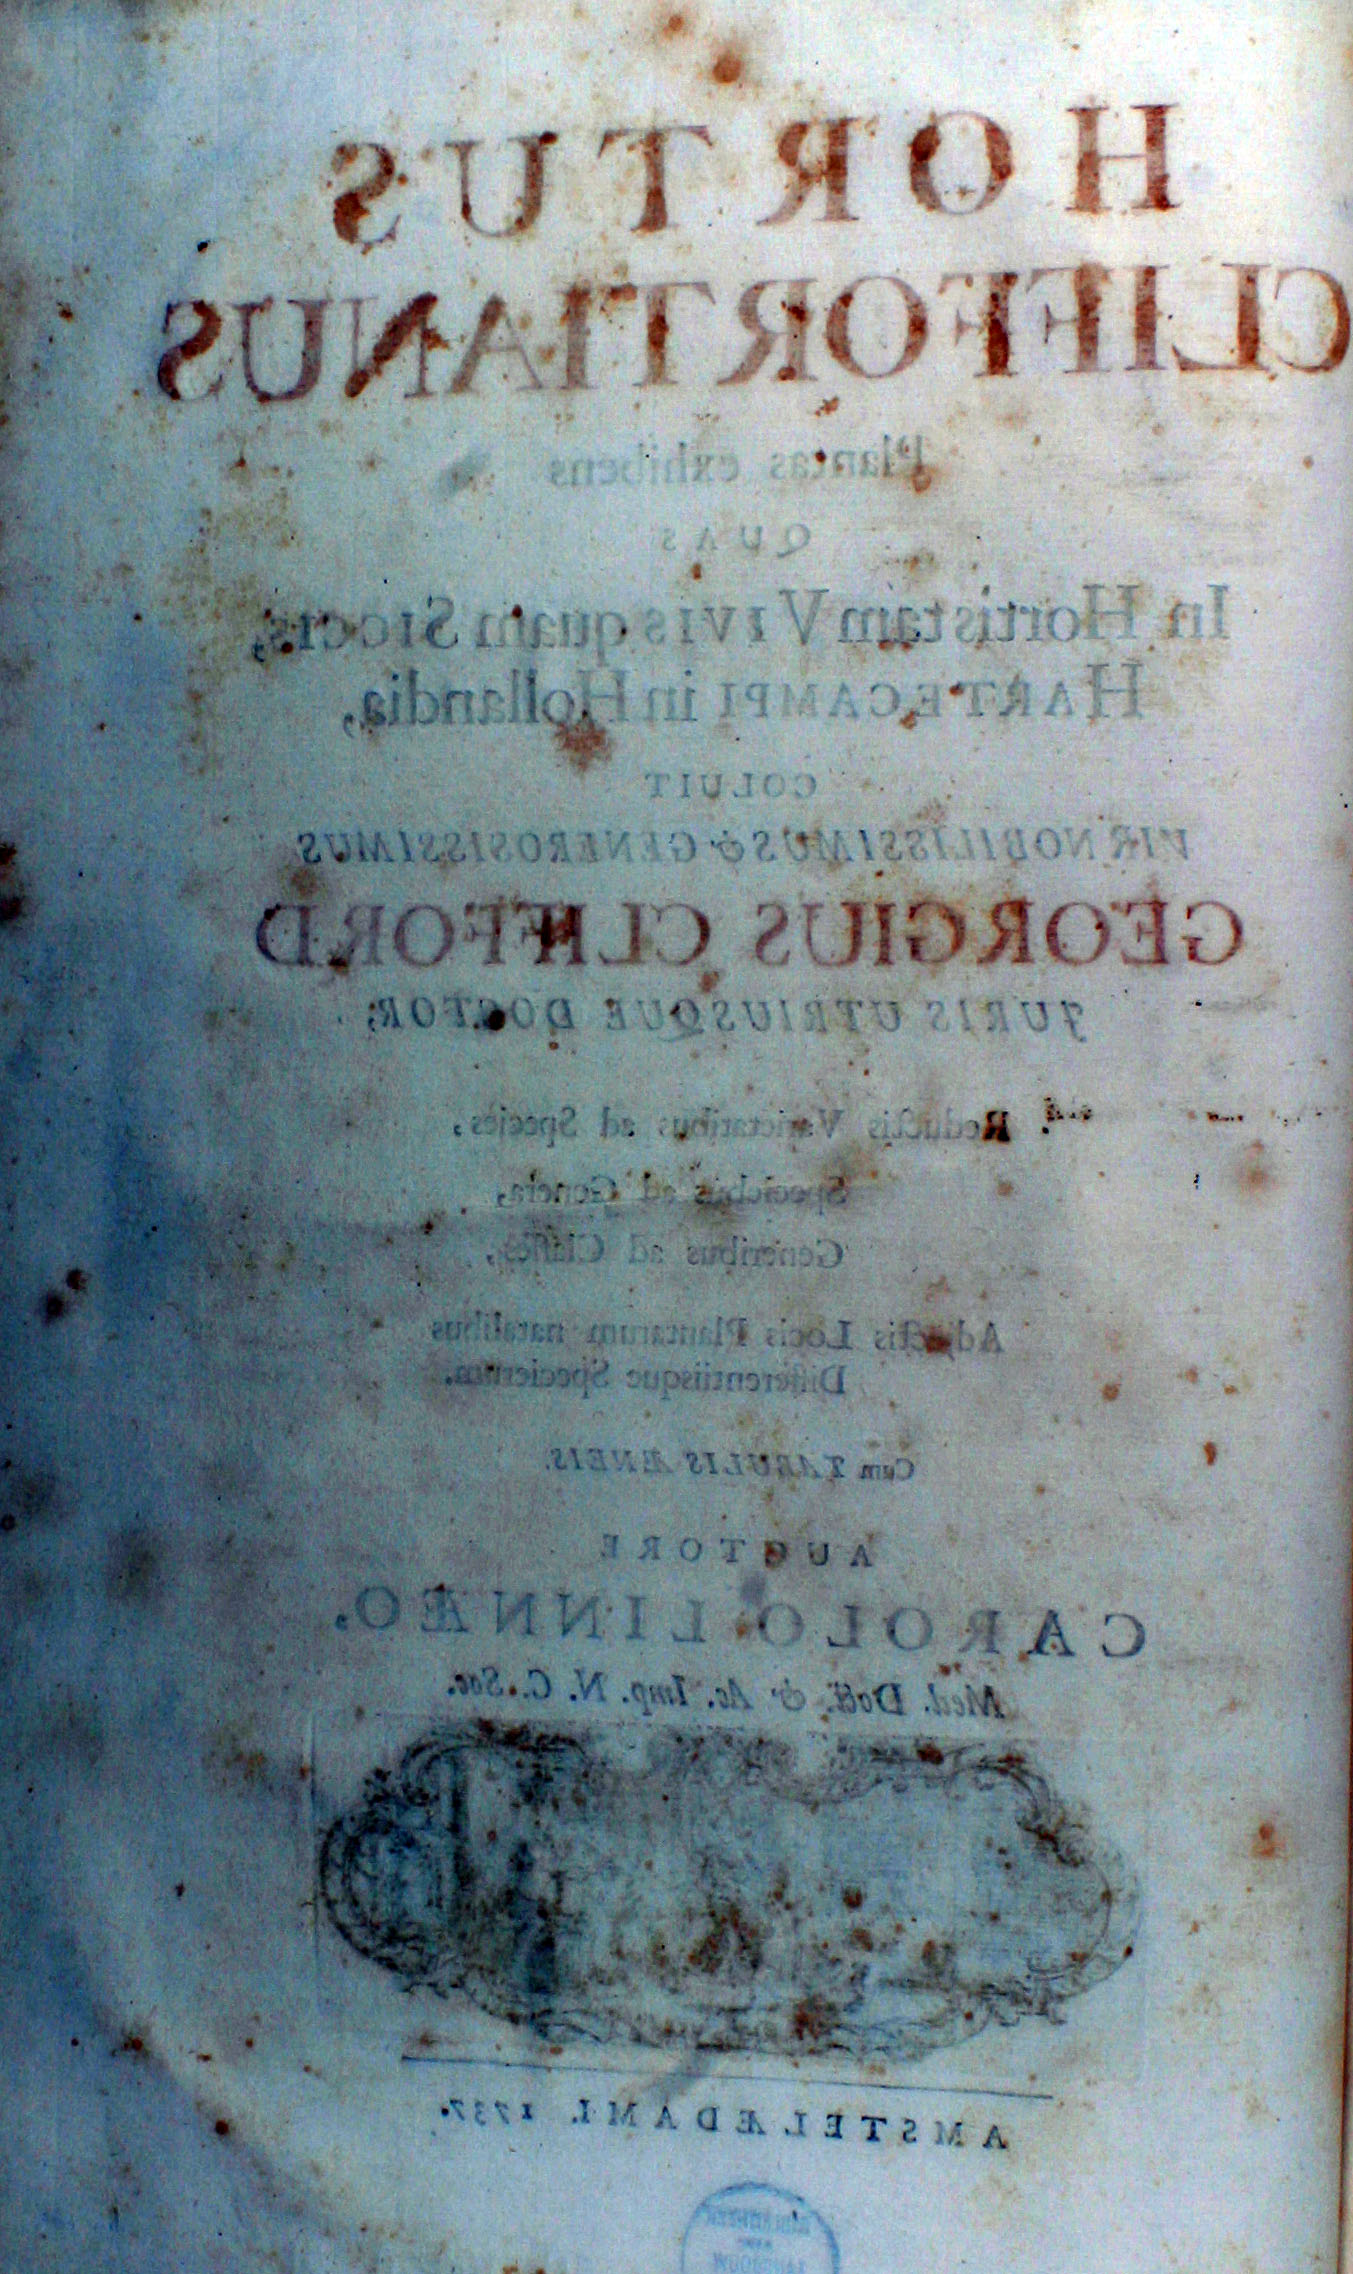 HORTUS
CLIFFORTIANUS
Plantas exhibens
QUAS
In Hortis tam VIVIS quam SICCIS,
HARTECAMPI in Hollandia,
COLUIT
VIR NOBILISSIMUS & GENEROSISSIMUS
GEORGIUS CLIFFORD
JURIS UTRIUSQUE DOCTOR;
Reductis Varietatibus ad Species,
Speciebus ad Genera,
Generibus ad Classes,
Adjectis Locis Plantarum natalibus
Differentiisque Specierum.
Cum TABULIS ÆNEIS.
AUCTORE
CAROLO LINNÆO,
Med. Doct. & Ac. Imp. N. C. Soc.
AMSTELÆDAMI. 1737.